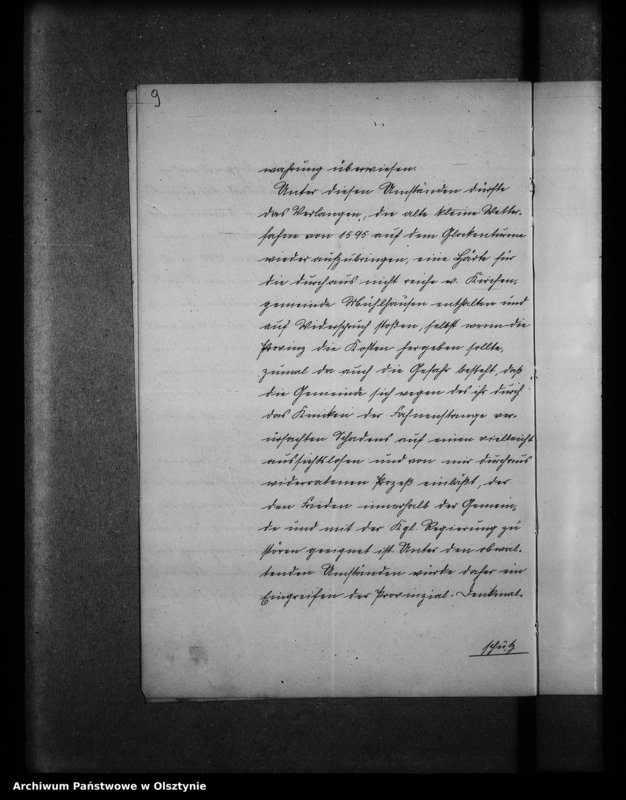 9
wahrung überwiesen.
Unter diesen Umständen dürfte
das Verlangen, die alte kleine Wetter-
fahne von 1595 auf dem Glockenturme
wieder aufzubringen, eine Härte für
die durchaus nicht reiche ev. Kirchen-
gemeinde Mühlhausen enthalten und
auf Widerspruch stoßen, selbst wenn die
Provinz die Kosten hergeben sollte,
zumal da auch die Gefahr besteht, daß
die Gemeinde sich wegen des ihr durch
das Knicken der Fahnenstange ver-
ursachten Schadens auf einen vielleicht
aussichtslosen und von mir durchaus
widerratenen Prozeß einläßt, der
den Frieden innerhalb der Gemein-
de und mit der Kgl. Regierung zu
stören geeignet ist. Unter den obwal-
tenden Umständen würde daher ein
Eingreifen der Provinzial-Denkmal-
schutz
Archiwum Państwowe w Olsztynie